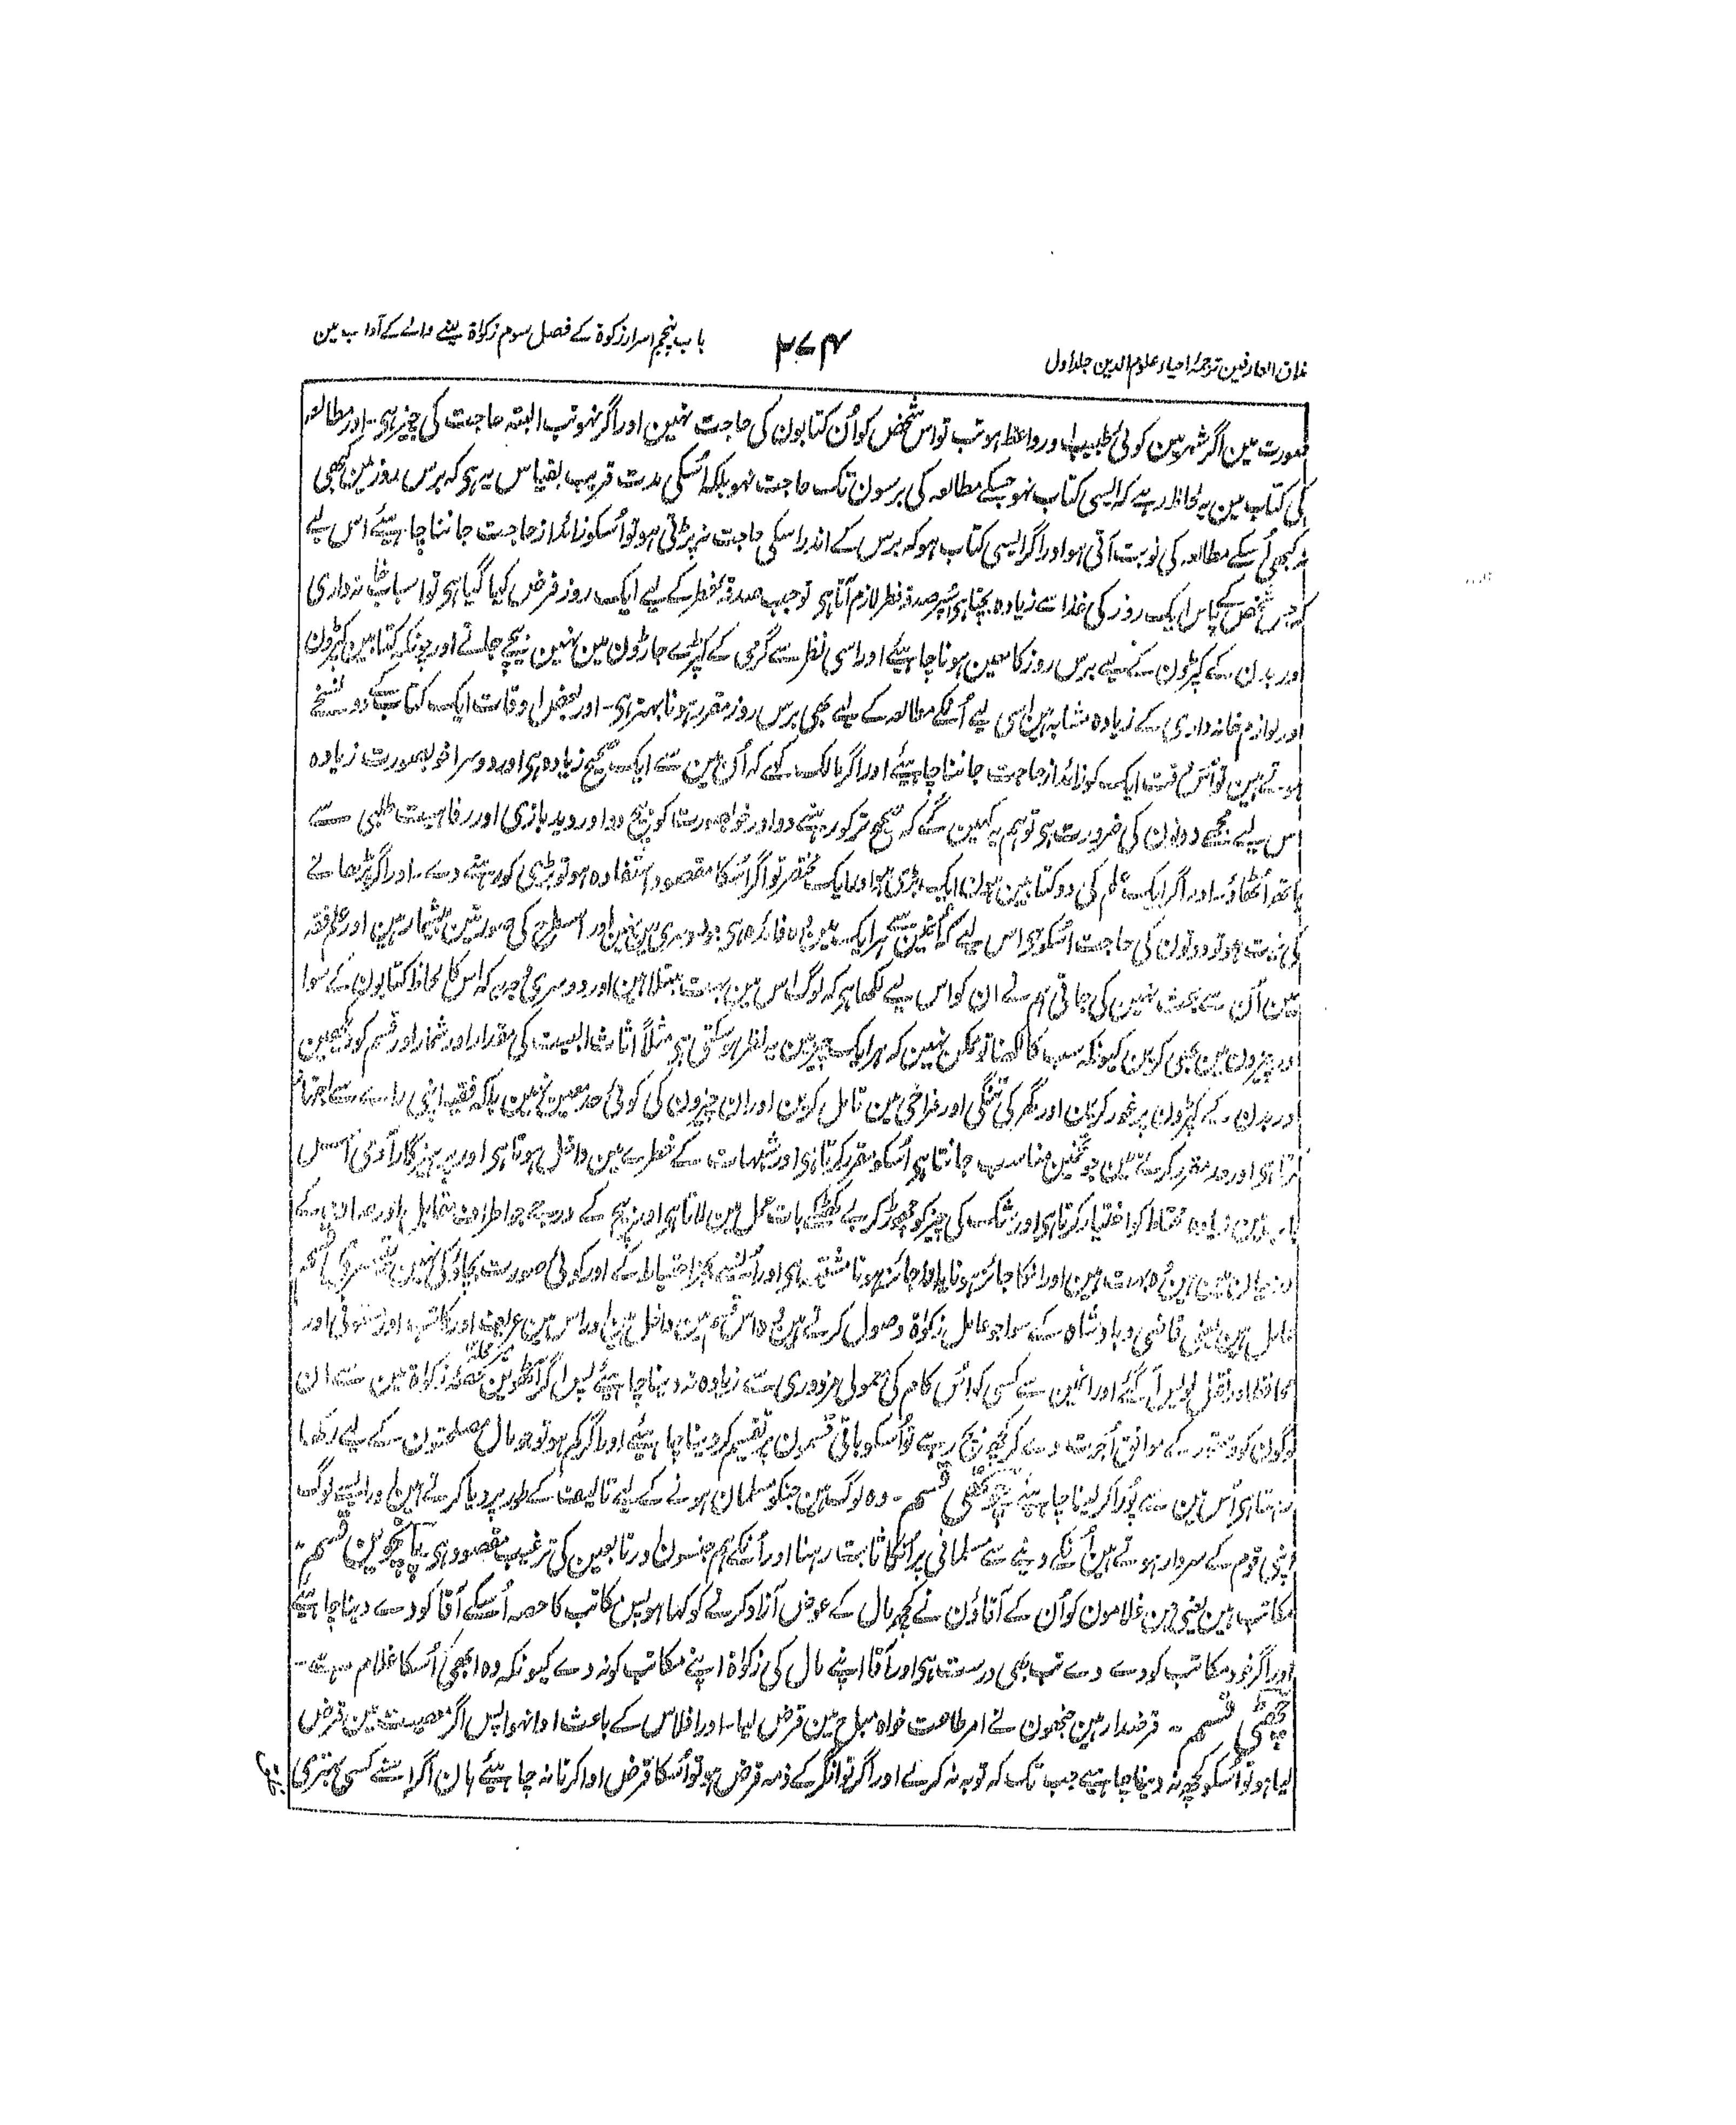 مذاق العارفین ترجمۂ احیاء علوم الدین جلد اول
۲۷۴
باب پنجم اسرار زکوٰۃ کے فصل سوم زکوٰۃ لینے والے کے آداب مین
صورت مین اگر شہر مین کوئی طبیب اور واعظ ہو تب تو اس شخص کو اُن کتابون کی حاجت نہین اور اگر نہو تب البتہ حاجت کی چیز ہی۔ اور مطالعہ
کی کتاب مین یہ لحاظ رہے کہ ایسی کتاب نہو جسکے مطالعہ کی برسون تک حاجت نہو بلکہ اُسکی مدت قریب بقیاس یہ ہی کہ برس روز مین کبھی
نہ کبھی اُسکے مطالعہ کی نوبت آتی ہو اور اگر ایسی کتاب ہو کہ برس کے اندر اسکی حاجت نہ پڑتی ہو تو اُسکو زائد از حاجت جاننا چاہیئے اس لیے
کہ جس شخص کے پاس ایک روز کی غذا سے زیادہ بچتا ہی اُسپر صدقۂ فطر لازم آتا ہی تو جب صدقۂ فطر کے لیے ایک روز فرض کیا گیا ہی تو اسباب خانہ داری
اور بدن کے کپڑون کے لیے برس روز کا معین ہونا چاہیئے اور اسی نظر سے گرمی کے کپڑے جاڑون مین نہین بیچے جاتے اور چونکہ کتابین کپڑون
اور لوازم خانہ داری کے زیادہ مشابہ ہین اسی لیے اُنکے مطالعہ کے لیے بھی برس روز مقرر ہونا بہتر ہی۔ اور بعض اوقات ایک کتاب کے دو نسخے
ہوتے ہین تو اُس وقت ایک کو زائد از حاجت جاننا چاہیئے اور اگر مالک کہے کہ اُن مین سے ایک صحیح زیادہ ہی اور دوسرا خوبصورت زیادہ
اس لیے مجھے دونون کی ضرورت ہی تو ہم یہ کہین گے کہ صحیح تر کو رہنے دو اور خوبصورت کو بیچ دو اور دید بازی اور رفاہیت طلبی سے
ہاتھ اُٹھاؤ۔ اور اگر ایک علم کی دو کتابین ہون ایک بڑی ہو اور ایک مختصر تو اگر اُسکا مقصود استفادہ ہو تو بڑی کو رہنے دے۔ اور اگر پڑھانے
کی نیت ہو تو دونون کی حاجت اُسکو ہی اس لیے کہ اُنمین سے ہر ایک مین وہ فائدہ ہی جو دوسری مین نہین اور اسطرح کی صورتین بیشمار ہین اور علم فقہ
مین اُن سے بحث نہین کی جاتی ہم نے ان کو اس لیے لکھا ہی کہ لوگ اس مین بہت مبتلا ہین اور دوسری وجہ یہ کہ اس کا لحاظ کتابون کے سوا
اور چیزون مین بھی کرین کیونکہ سب کا لکھنا تو ممکن نہین کہ ہر ایک چیز مین یہ نظر ہو سکتی ہی مثلاً اثاث البیت کی مقدار اور شمار اور قسم کو دیکھین
اور بدن کے کپڑون پر غور کرین اور گھر کی تنگی اور فراخی مین تامل کرین اور ان چیزون کی کوئی حد معین نہین بلکہ فقیہ اپنی رائے سے اجتہاد
کرتا ہی اور حد مقرر کرنے مین جو تخمین مناسب جانتا ہی اُسکو مقرر کرتا ہی اور شبہات کے خطرے مین داخل ہوتا ہی اور پرہیزگار آدمی اس
باب مین زیادہ محتاط کو اختیار کرتا ہی اور شک کی چیز کو چھوڑ کر بے کھٹکے بات عمل مین لاتا ہی اور بیچ کے درجے جو اطراف متقابل اور ظاہر کے
درمیان مین ہین وہ بہت ہین اور انکا جائز ہونا یا ناجائز ہونا مشتبہ ہی اور اُنسے بجز احتیاط کے اور کوئی صورت بچاؤ کی نہین۔ تیسری قسم
عامل ہین یعنی قاضی و بادشاہ کے سوا جو عامل زکوٰۃ وصول کرتے ہین وہ اس قسم مین داخل ہین اور اس مین عریف اور کاتب اور مستوفی اور
محافظ اور نقل نویس آ گئے اور انمین سے کسی کو اُس کام کی معمولی مزدوری سے زیادہ نہ دینا چاہیئے پس اگر آٹھوین حصۂ زکوٰۃ مین سے ان
لوگون کو دستور کے موافق اُجرت دے کر کچھ بچ رہے تو اُسکو باقی قسمون پر تقسیم کر دینا چاہیئے اور اگر کم ہو تو جو مال مصلحتون کے لیے رکھا
رہتا ہی اُس مین سے پورا کر لینا چاہیئے۔ چوتھی قسم۔ وہ لوگ ہین جنکو مسلمان ہونے کے لیے تالیف کے طور پر دیا کرتے ہین اور ایسے لوگ
اپنی قوم کے سردار ہوتے ہین اُنکے دینے سے مسلمانی پر اُنکا ثابت رہنا اور اُنکے ہم جنسون اور تابعین کی ترغیب مقصود ہی۔ پانچوین قسم۔
مکاتب ہین یعنی جن غلامون کو اُن کے آقاؤن نے کچھ مال کے عوض آزاد کرنے کو کہا ہو پس مکاتب کا حصہ اُسکے آقا کو دے دینا چاہیئے
اور اگر خود مکاتب کو دے دے تب بھی درست ہی اور آقا اپنے مال کی زکوٰۃ اپنے مکاتب کو نہ دے کیونکہ وہ ابھی اُسکا غلام ہے۔
چھٹی قسم۔ قرضدار ہین جنھون نے امر طاعت خواہ مباح مین قرض لیا۔ اور افلاس کے باعث ادا نہوا پس اگر معصیت مین قرض
لیا ہو تو اُسکو کچھ نہ دینا چاہیئے جب تک کہ توبہ نہ کرے اور اگر توانگر کے ذمہ قرض ہو تو اُسکا قرض ادا کرنا نہ چاہیئے ہان اگر اسنے کسی بہتری